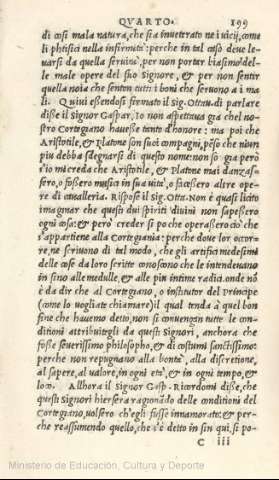 QVARTO. 199
di cosi mala natura, che sia inueterato ne i uicij, come
li phtisici nella infirmità: perche in tal caso deue le-
uarsi da quella seruitù, per non portar biasimo del-
le male opere del suo signore, & per non sentir
quella noia che senton tutti i boni che seruono a i ma
li. Quiui essendosi firmato il Sig. Ottau. di parlare
disse il Signor Gaspar, Io non aspettaua gia chel no-
stro Cortegiano hauesse tanto d'honore: ma poi che
Aristotile, & Platone son suoi compagni, peso che niun
piu debba sdegnarsi di questo nome: non so gia però
s'io mi creda che Aristotile, & Platone mai danzas-
sero, o fossero musici in sua uita, o facessero altre opere
di caualleria. Rispose il Sig. Otta. Non è quasi licito
imaginar che questi dui spiriti diuini non sapessero
ogni cosa: & però creder si po che operassero ciò che
s'appartiene alla Cortegiania: perche doue lor occor-
re, ne scriuono di tal modo, che gli artifici medesimi
delle cose da loro scritte conoscono che le intendeuano
in sino alle medulle, & alle piu intime radici. onde nõ
è da dir che al Cortegiano, o institutor del Principe
(come lo uogliate chiamare) il qual tenda a quel bon
fine che hauemo detto, non si conuengan tutte le con-
ditioni attribuitegli da questi Signori, anchora che
fosse seuerissimo philosopho, & di costumi sanctissimo:
perche non repugnano alla bontà, alla discretione,
al sapere, al ualore, in ogni età, & in ogni tempo, &
loco. Allhora il Signor Gasp. Ricordomi disse, che
questi Signori hiersera ragionãdo delle conditioni del
Cortegiano, uolsero ch'egli fosse innamorato: & per-
che reassumendo quello, che s'è detto in sin qui, si po-
C iii
Ministerio de Educación, Cultura y Deporte